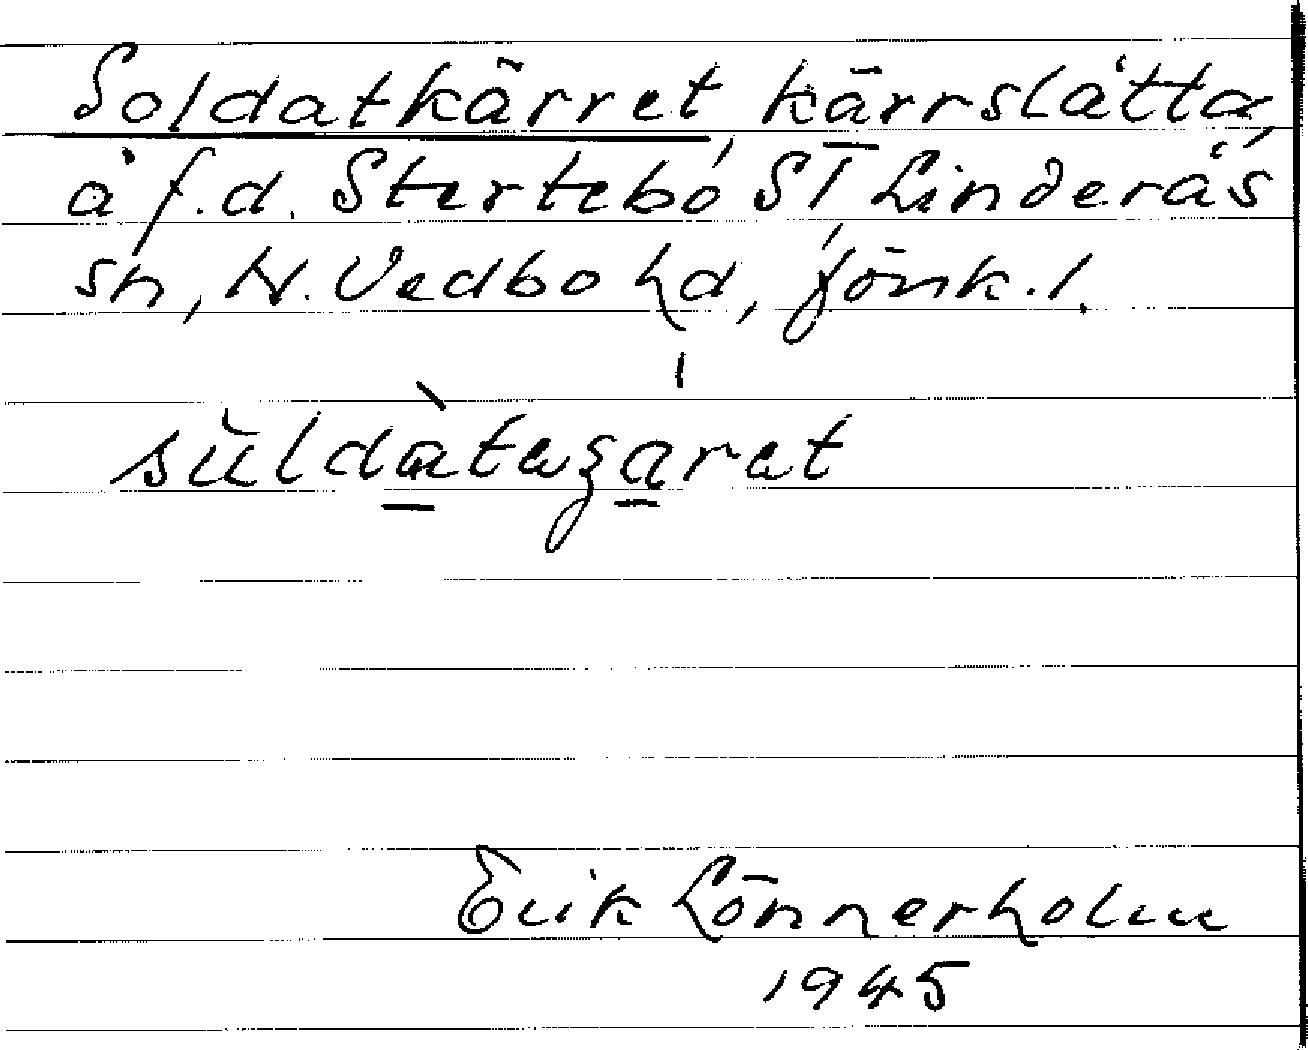 Soldatkärret, kärrslåtta,
å f.d. Stertebo ST Linderås
sn, N. Vedbo hd, Jönk. l.
Erik Lönnerholm
1945